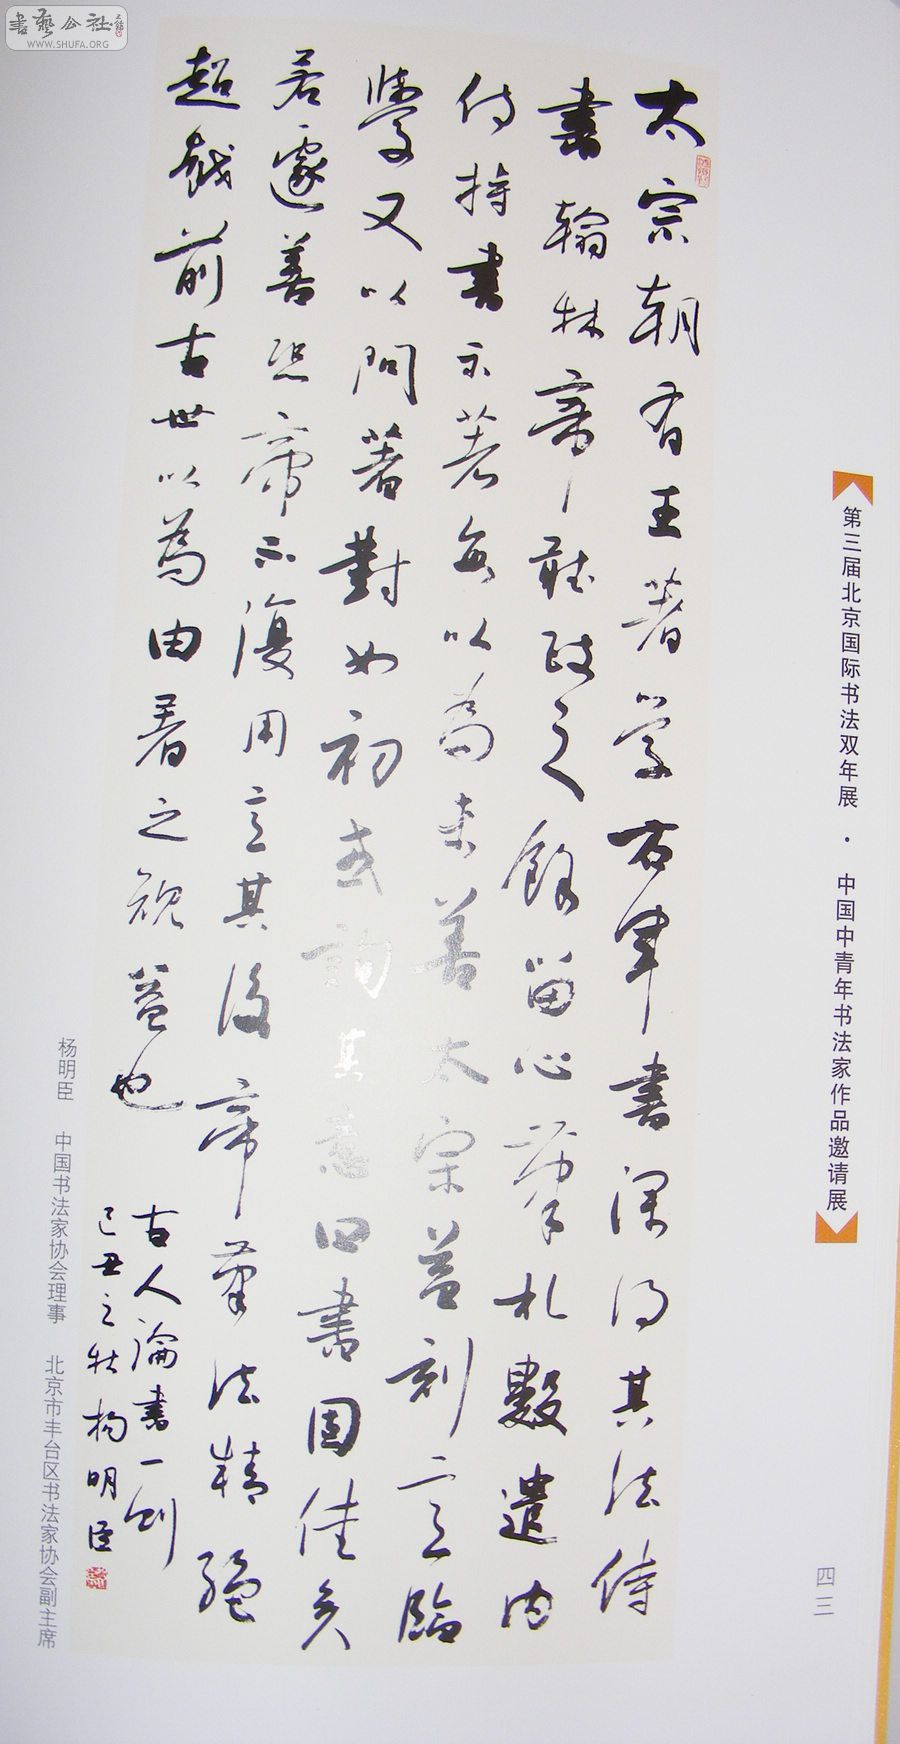 書藝公社
WWW.SHUFA.ORG
太宗朝有王著学右軍書深得其法侍
書翰林帝聽政之餘留心筆札數遣内
侍持書示著每以為未善太宗益刻意臨
學又以問著對如初或詢其意曰書固佳矣
若遽善恐帝不復用意其後帝筆法精絕
超越前古世以為由著之規益也
古人論書一則
己丑之秋楊明臣
第三届北京国际书法双年展·中国中青年书法家作品邀请展
四三
杨明臣 中国书法家协会理事 北京市丰台区书法家协会副主席